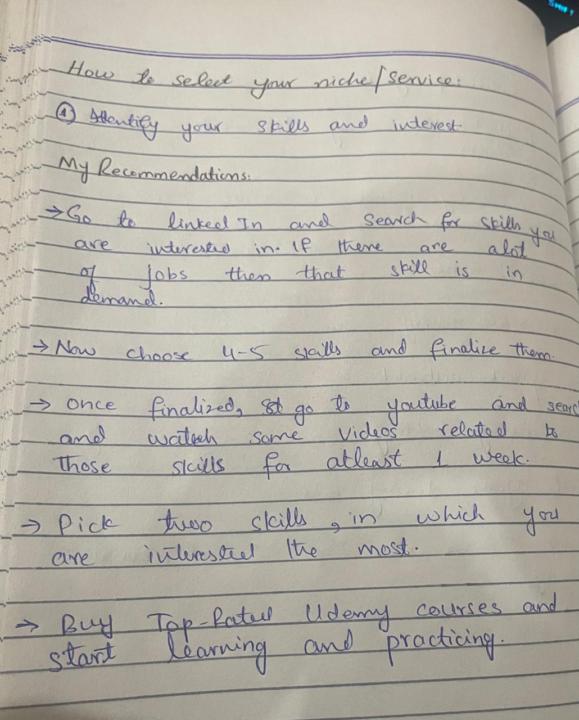 How to select your niche/service:
① Identify your skills and interest.
My Recommendations:
→ Go to linked In and search for skills you
are interested in. If there are alot
of jobs then that skill is in
demand.
→ Now choose 4-5 skills and finalize them.
→ Once finalized, go to youtube and search
and watch some videos related to
those skills for atleast 1 week.
→ Pick two skills, in which you
are interested the most.
→ Buy Top-Rated Udemy courses and
start learning and practicing.